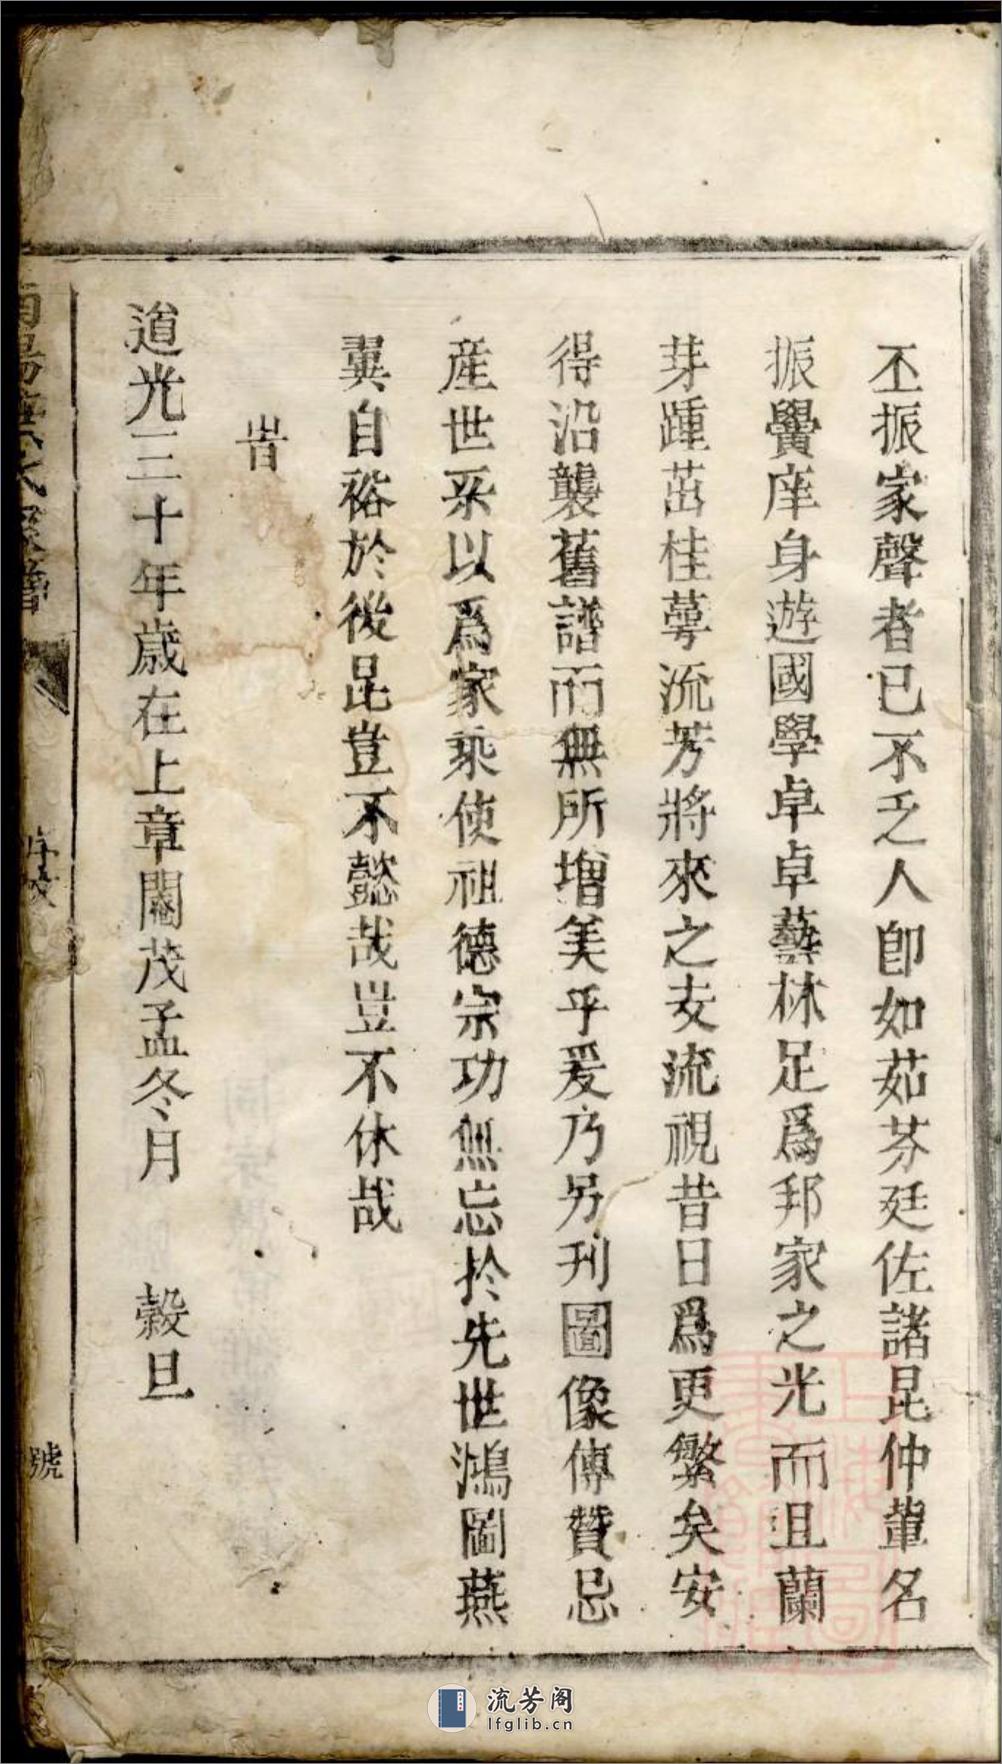 丕振家聲者已不乏人卽如茹芬廷佐諸昆仲軰名
振黌庠身遊國學卓卓藝林足爲邦家之光而且蘭
芽踵茁桂蕚流芳將來之支流視昔日爲更繁矣安
得沿襲舊譜而無所增美乎爰乃另刋圖像傳贊忌
産世系以爲家乘使祖德宗功無忘於先世鴻圖燕
翼自裕於後昆豈不懿哉豈不休哉
旹
道光三十年歲在上章閹茂孟冬月 榖旦
氏家譜
序
號
流芳阁
lfglib.cn